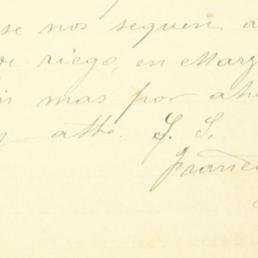 se nos seguen a
riego, en Marz
mas por aho
atto. S. S.
Franc